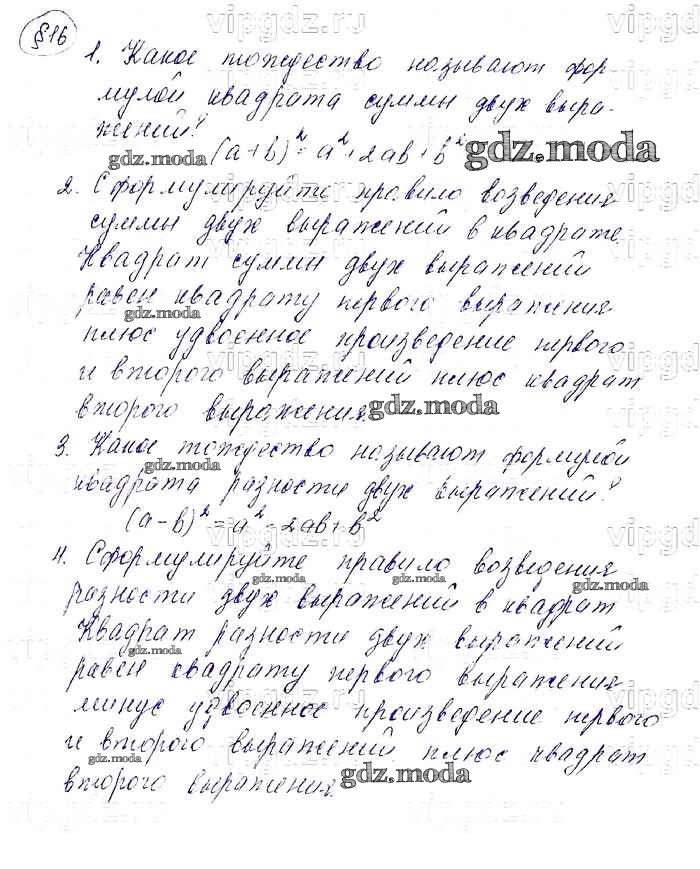 §16
1. Какое тождество называют фор-
мулой квадрата суммы двух выра-
жений?
(a+b)² = a² + 2ab + b²
2. Сформулируйте правило возведения
суммы двух выражений в квадрате.
Квадрат суммы двух выражений
равен квадрату первого выражения
плюс удвоенное произведение первого
и второго выражений плюс квадрат
второго выражения.
3. Какое тождество называют формулой
квадрата разности двух выражений?
(a-b)² = a² - 2ab + b²
4. Сформулируйте правило возведения
разности двух выражений в квадрат
Квадрат разности двух выражений
равен квадрату первого выражения
минус удвоенное произведение первого
и второго выражений плюс квадрат
второго выражения.
gdz.moda
gdz.moda
gdz.moda
gdz.moda
gdz.moda
gdz.moda
gdz.moda
gdz.moda
gdz.moda
gdz.moda
vipgdz.ru